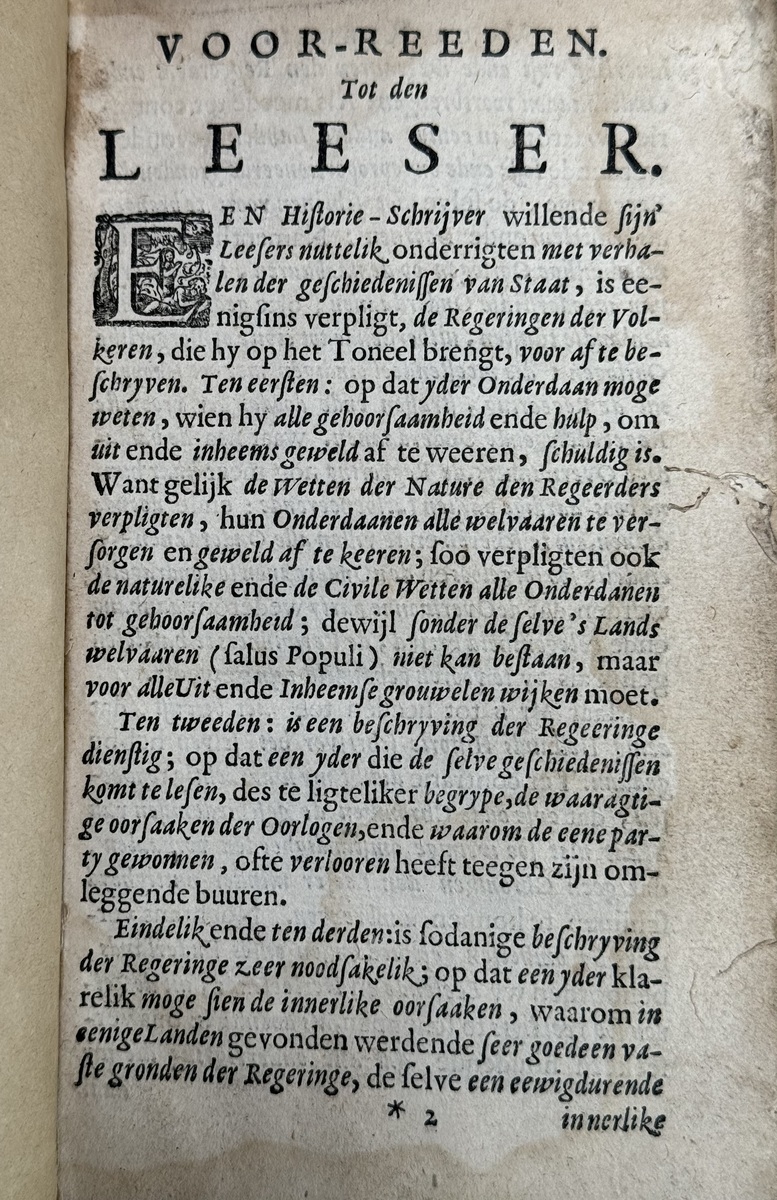 VOOR-REEDEN.
Tot den
LEESER.
EEN Hiſtorie-Schrijver willende ſijn
Leeſers nuttelik onderrigten met verha-
len der geſchiedeniſſen van Staat, is ee-
nigſins verpligt, de Regeringen der Vol-
keren, die hy op het Toneel brengt, voor af te be-
ſchryven. Ten eerſten: op dat yder Onderdaan moge
weten, wien hy alle gehoorſaamheid ende hulp, om
uit ende inheems geweld af te weeren, ſchuldig is.
Want gelijk de Wetten der Nature den Regeerders
verpligten, hun Onderdaanen alle welvaaren te ver-
ſorgen en geweld af te keeren; ſoo verpligten ook
de naturelike ende de Civile Wetten alle Onderdanen
tot gehoorſaamheid; dewijl ſonder de ſelve 's Lands
welvaaren (ſalus Populi) niet kan beſtaan, maar
voor alle Uit ende Inheemſe grouwelen wijken moet.
Ten tweeden: is een beſchryving der Regeeringe
dienſtig; op dat een yder die de ſelve geſchiedeniſſen
komt te leſen, des te ligteliker begrype, de waaragti-
ge oorſaaken der Oorlogen, ende waarom de eene par-
ty gewonnen, ofte verlooren heeft teegen zijn om-
leggende buuren.
Eindelik ende ten derden: is ſodanige beſchryving
der Regeringe zeer noodſakelik; op dat een yder kla-
relik moge ſien de innerlike oorſaaken, waarom in
eenige Landen gevonden werdende ſeer goede en va-
ſte gronden der Regeringe, de ſelve een eewigdurende
* 2 innerlike